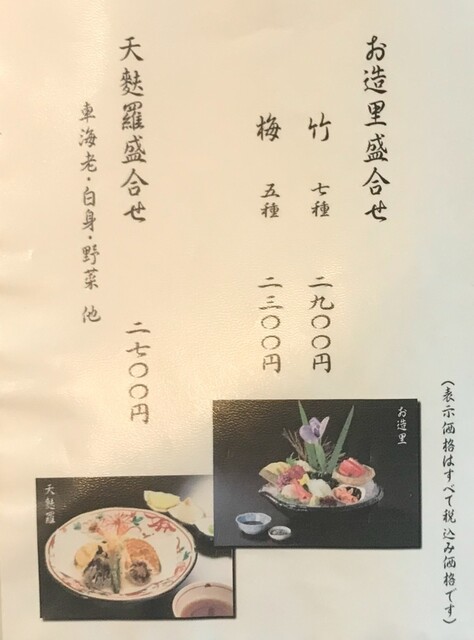 お造里盛合せ
竹 七種 二九〇〇円
梅 五種 二三〇〇円
天麩羅盛合せ
車海老・白身・野菜 他
二七〇〇円
(表示価格はすべて税込み価格です)
お造里
天麩羅